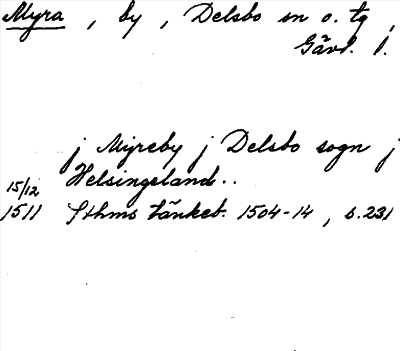 Myra , by , Delsbo sn o. tg ,
Gävl. l.
j Myreby j Delsbo sogn j
15/12 Helsingeland..
1511 Sthms tänkeb. 1504-14 , s.231